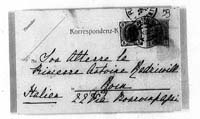 Korrespondenz-K
Son Altesse la
Princesse Antoine Radziwill
Rom
Italien
22 Via Boncompagni